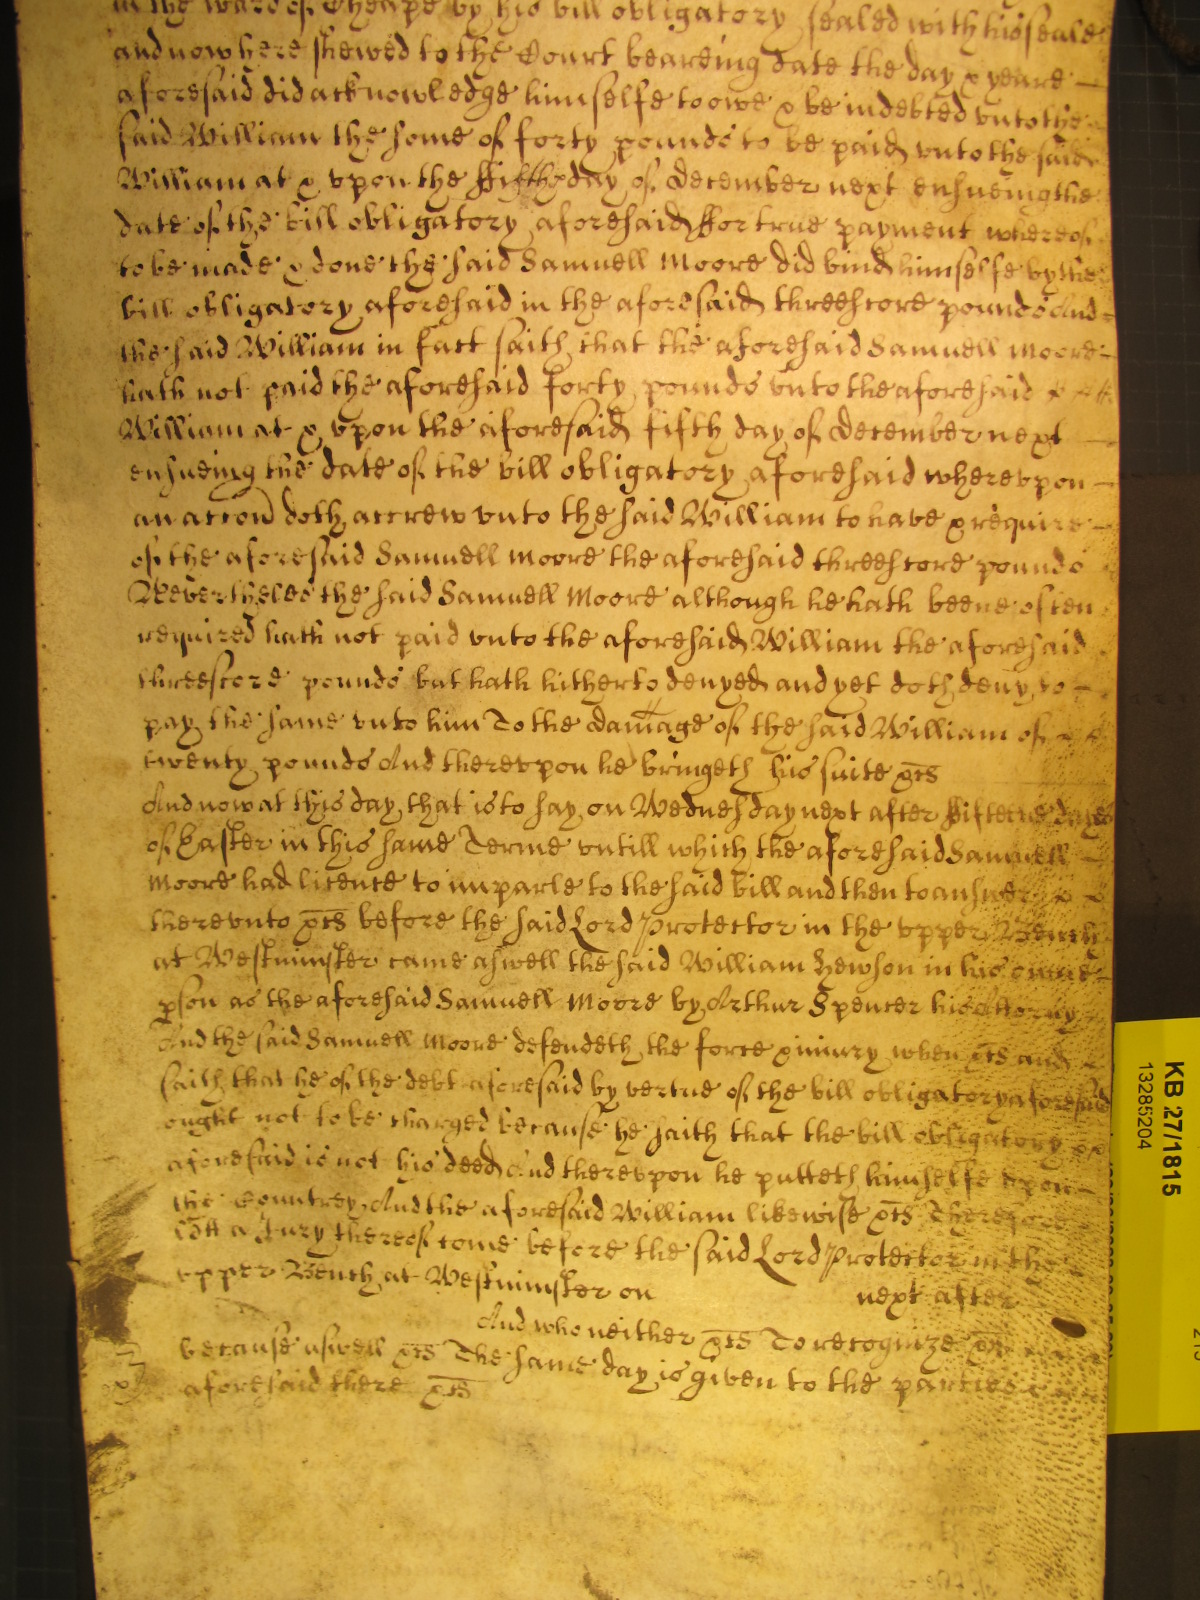 in the ward of Cheape by his bill obligatory sealed with his seale
and now here shewed to the Court beareing date the day & yeare
aforesaid did acknowledge himselfe to owe & be indebted unto the
said William the some of forty pounds to be paid unto the said
William at & upon the ffifth day of december next ensueing the
date of the bill obligatory aforesaid ffor true payment whereof
to be made & done the said Samuell Moore did bind himselfe by the
bill obligatory aforesaid in the aforesaid threescore pounds And
the said William in fact saith that the aforesaid Samuell Moore
hath not paid the aforesaid forty pounds vnto the aforesaid
William at & vpon the aforesaid fifth day of december next
ensueing the date of the bill obligatory aforesaid wherevpon
an accon doth accrew vnto the said William to have & require
of the aforesaid Samuell Moore the aforesaid threescore pounds
Neverthelес the said Samuell Moore although he hath beene often
required hath not paid vnto the aforesaid William the aforesaid
threescore pounds but hath hitherto denyed and yet doth deny to
pay the same vnto him To the damage of the said William of
twenty pounds And therevpon he bringeth his suite &cts
And now at this day that is to say on Wednesday next after ffifteene dayes
of Easter in this same Terme vntill which the aforesaid Samuell
Moore had licence to imparle to the said bill and then to answer
therevnto &cts before the said Lord Protector in the vpper Bench
at Westminster came aswell the said William Hewson in his owne
pson as the aforesaid Samuell Moore by Arthur Spencer his Attorny
And the said Samuell Moore defendeth the force & iniury when &cts and
saith that he of the debt aforesaid by vertue of the bill obligatory aforesaid
ought not to be charged because he saith that the bill obligatory
aforesaid is not his deed And therevpon he putteth himselfe vpon
the Countrey And the aforesaid William likewise &cts Therefore
lett a Jury thereof come before the said Lord Protector in the
vpper Bench at Westminster on next after
And who neither &cts To recognize &c
because aswell &cts The same day is given to the parties
aforesaid there &cts
KB 27/1815
13285204